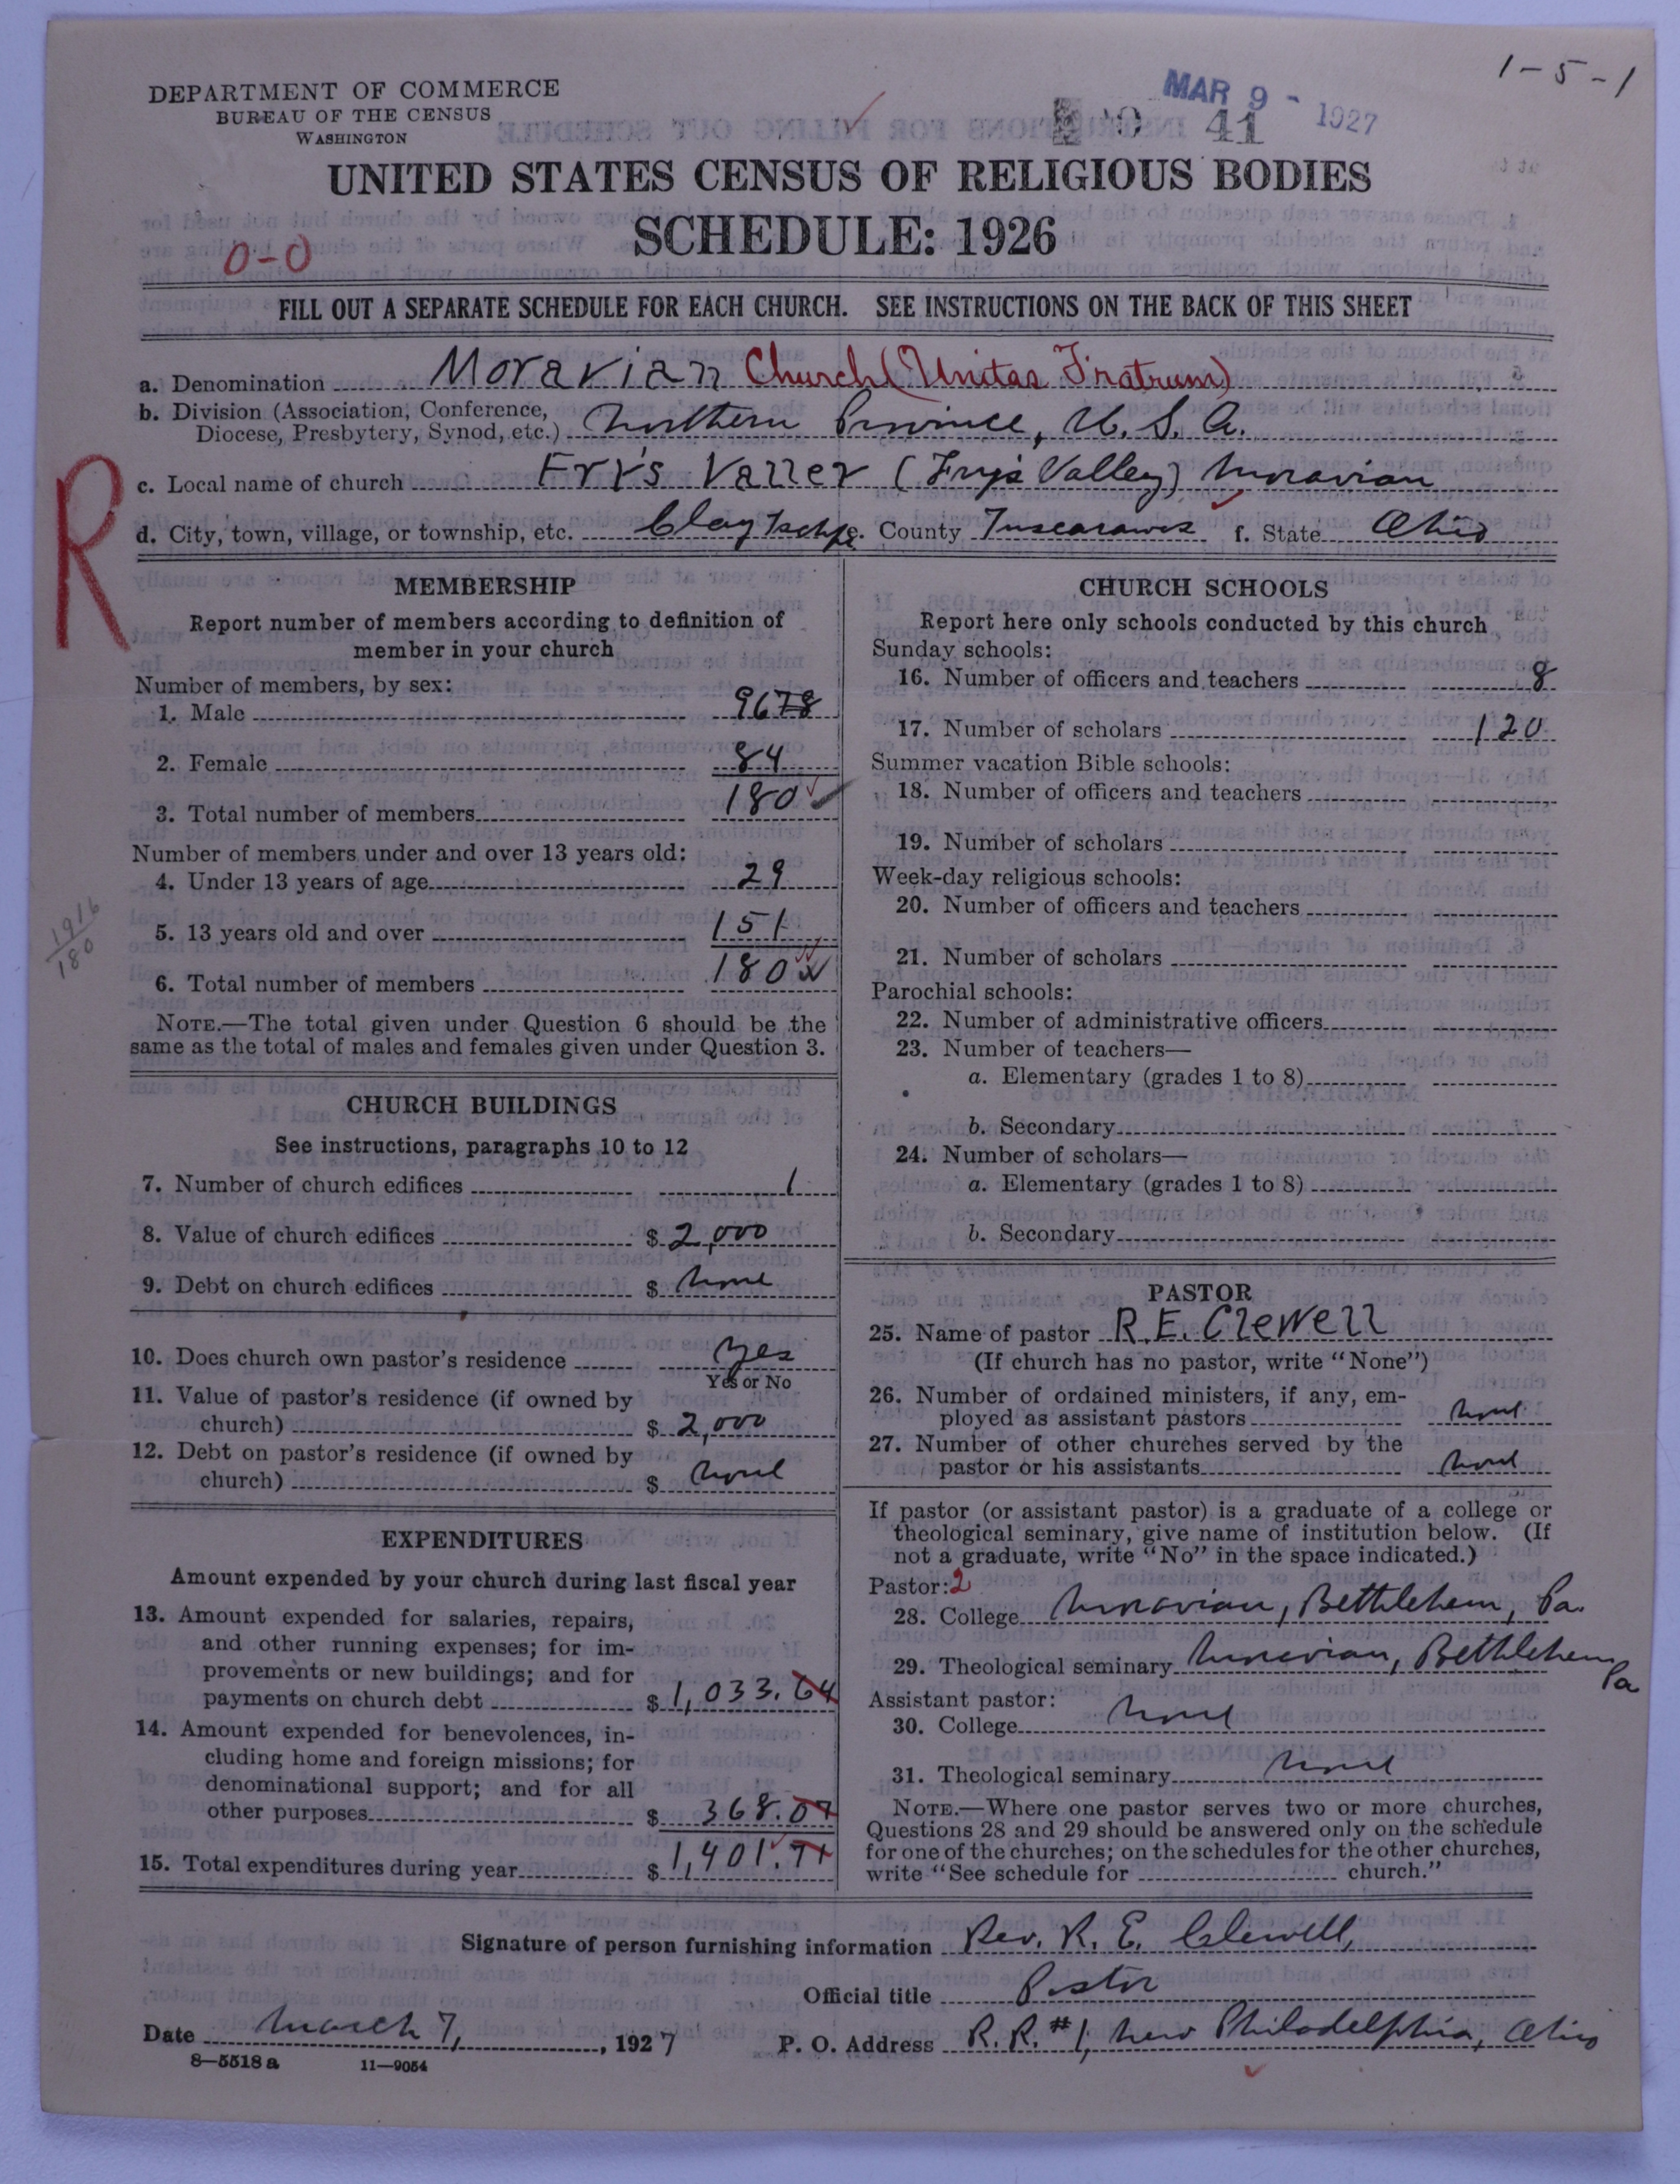 1-5-1
DEPARTMENT OF COMMERCE
BUREAU OF THE CENSUS
WASHINGTON
MAR 9 - 1927
41
UNITED STATES CENSUS OF RELIGIOUS BODIES
SCHEDULE: 1926
0-0
FILL OUT A SEPARATE SCHEDULE FOR EACH CHURCH. SEE INSTRUCTIONS ON THE BACK OF THIS SHEET
a. Denomination Moravian Church (Unitas Fratrum)
b. Division (Association, Conference, Diocese, Presbytery, Synod, etc.) Northern Province, U. S. A.
R
c. Local name of church Fry's Valley (Fry's Valley) Moravian
d. City, town, village, or township, etc. Clay Township e. County Tuscarawas f. State Ohio
MEMBERSHIP
Report number of members according to definition of
member in your church
Number of members, by sex:
1. Male 96 78
2. Female 84
3. Total number of members 180
Number of members under and over 13 years old:
4. Under 13 years of age 29
5. 13 years old and over 151
1916
180
6. Total number of members 180
NOTE.—The total given under Question 6 should be the
same as the total of males and females given under Question 3.
CHURCH BUILDINGS
See instructions, paragraphs 10 to 12
7. Number of church edifices 1
8. Value of church edifices $ 2,000
9. Debt on church edifices $ none
10. Does church own pastor's residence yes
Yes or No
11. Value of pastor's residence (if owned by
church) $ 2,000
12. Debt on pastor's residence (if owned by
church) $ none
EXPENDITURES
Amount expended by your church during last fiscal year
13. Amount expended for salaries, repairs,
and other running expenses; for im-
provements or new buildings; and for
payments on church debt $ 1,033.64
14. Amount expended for benevolences, in-
cluding home and foreign missions; for
denominational support; and for all
other purposes $ 368.07
15. Total expenditures during year $ 1,401.71
CHURCH SCHOOLS
Report here only schools conducted by this church
Sunday schools:
16. Number of officers and teachers 8
17. Number of scholars 120
Summer vacation Bible schools:
18. Number of officers and teachers
19. Number of scholars
Week-day religious schools:
20. Number of officers and teachers
21. Number of scholars
Parochial schools:
22. Number of administrative officers
23. Number of teachers—
a. Elementary (grades 1 to 8)
b. Secondary
24. Number of scholars—
a. Elementary (grades 1 to 8)
b. Secondary
PASTOR
25. Name of pastor R. E. Clewell
(If church has no pastor, write "None")
26. Number of ordained ministers, if any, em-
ployed as assistant pastors none
27. Number of other churches served by the
pastor or his assistants none
If pastor (or assistant pastor) is a graduate of a college or
theological seminary, give name of institution below. (If
not a graduate, write "No" in the space indicated.)
Pastor: 2
28. College Moravian, Bethlehem, Pa.
29. Theological seminary Moravian, Bethlehem Pa
Assistant pastor:
30. College none
31. Theological seminary none
NOTE.—Where one pastor serves two or more churches,
Questions 28 and 29 should be answered only on the schedule
for one of the churches; on the schedules for the other churches,
write "See schedule for church."
Signature of person furnishing information Rev. R. E. Clewell,
Official title Pastor
Date March 7, 1927 P. O. Address R. R. #1, New Philadelphia, Ohio
8-5518 a 11-9054